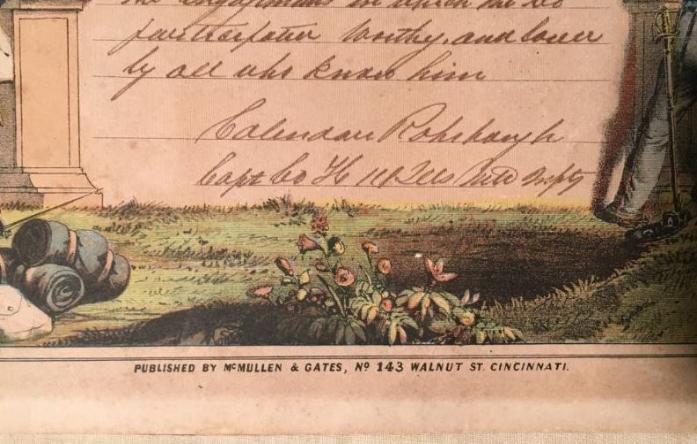 the engagements in which he has
participated Worthy, and loved
by all who know him
Calendar Rohrbaugh
Capt Co H 111 Ills Inft
PUBLISHED BY McMULLEN & GATES, No 143 WALNUT ST. CINCINNATI.